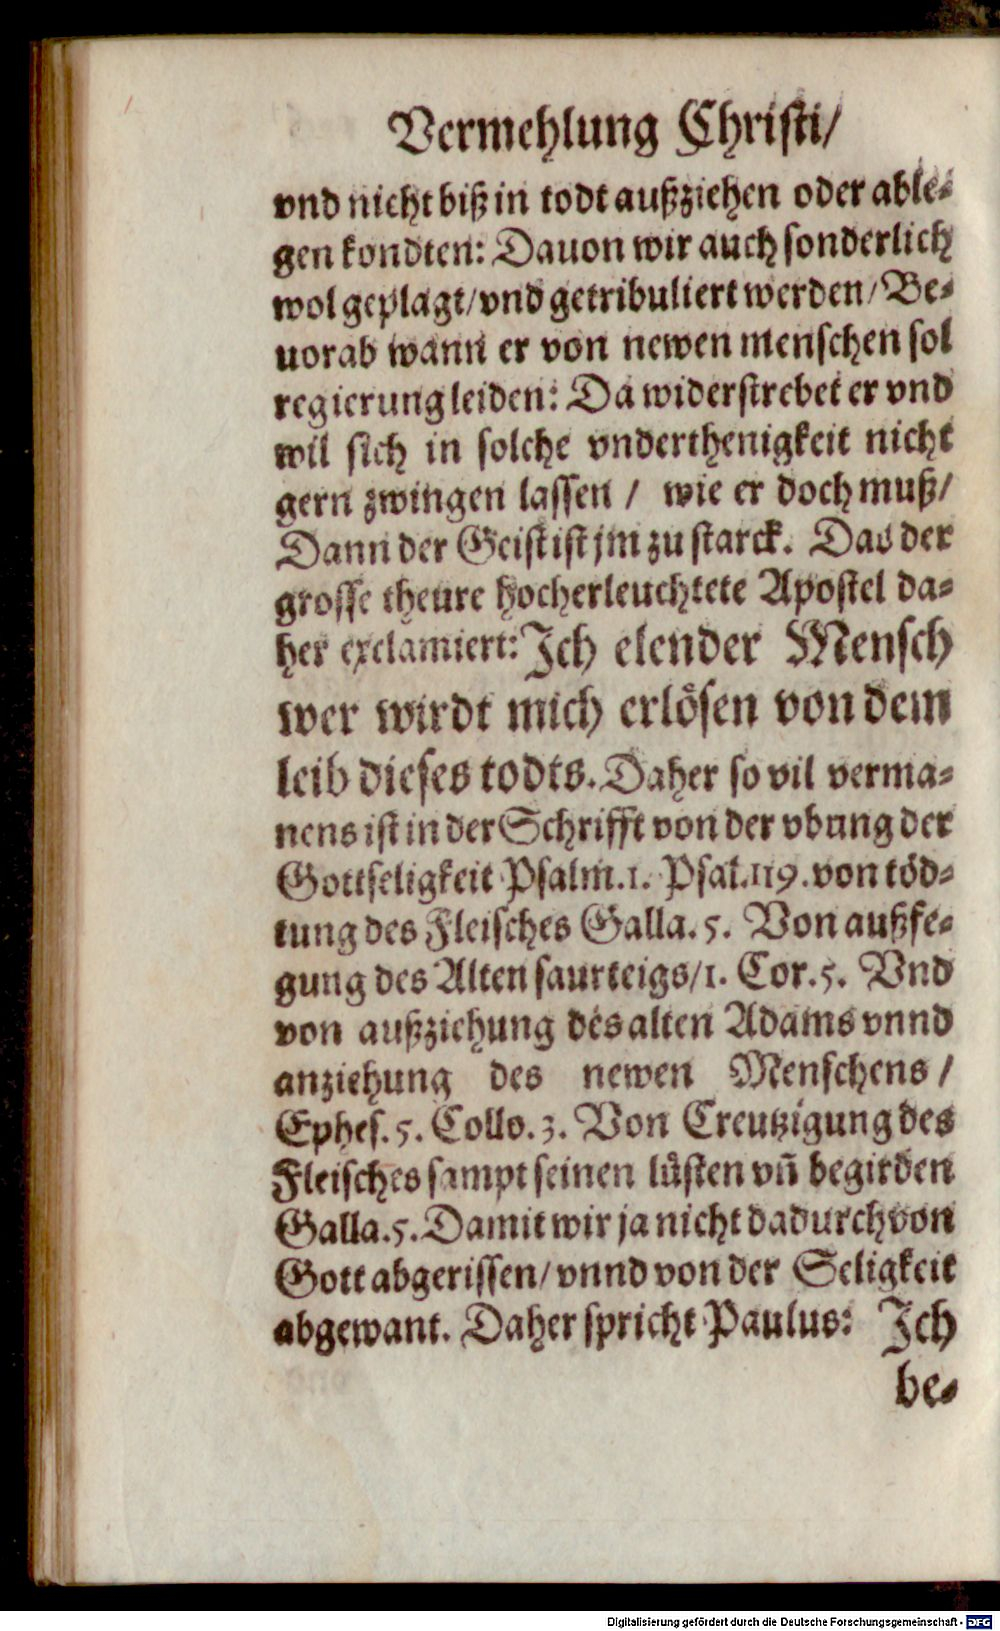 Vermehlung Christi/
vnd nicht biß in todt außziehen oder able-
gen kondten: Dauon wir auch sonderlich
wol geplagt/ vnd getribuliert werden/ Be-
uorab wann er von newen menschen sol
regierung leiden: Da widerstrebet er vnd
wil sich in solche vnderthenigkeit nicht
gern zwingen lassen / wie er doch muß/
Dann der Geist ist jm zu starck. Das der
grosse theure hocherleuchtete Apostel da-
her exclamiert: Ich elender Mensch
wer wirdt mich erlösen von dem
leib dieses todts. Daher so vil verma-
nens ist in der Schrifft von der vbung der
Gottseligkeit Psalm. 1. Psal. 119. von töd-
tung des Fleisches Galla. 5. Von außfe-
gung des Alten saurteigs/ 1. Cor. 5. Vnd
von außziehung des alten Adams vnnd
anziehung des newen Menschens /
Ephes. 5. Collo. 3. Von Creutzigung des
Fleisches sampt seinen lüsten vñ begirden
Galla. 5. Damit wir ja nicht dadurch von
Gott abgerissen/ vnnd von der Seligkeit
abgewant. Daher spricht Paulus: Ich
be-
Digitalisierung gefördert durch die Deutsche Forschungsgemeinschaft - DFG